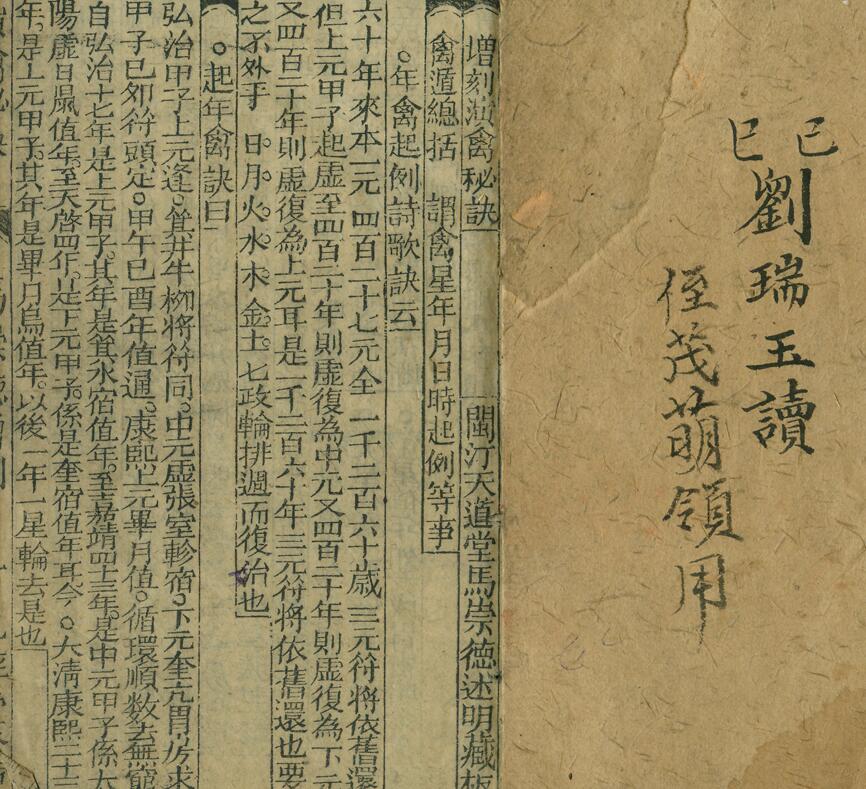 巳己
劉瑞玉讀
侄茂萌領用
增刻演禽秘訣 閩汀天道堂馬崇德述明藏板
禽遁總括 謂禽星年月日時起例等事
○年禽起例詩歌訣云
六十年來本一元 四百二十七元全 一千二百六十歲 三元符將依舊還
但上元甲子起虛至四百二十年則虛復為中元又四百二十年則虛復為下元
又四百二十年則虛復為上元耳是一千二百六十年三元符將依舊還也要
之不外于 日月火水木金土七政輪排週而復始也
○起年禽訣曰
弘治甲子上元逢。箕井牛柳將符同。中元虛張室軫宿。下元奎亢胃房求
甲子己卯符頭定。甲午己酉年值通。康熙上元畢月值。循環順数去無窮
自弘治十七年是上元甲子。其年是箕水宿值年。至嘉靖四十三年。是中元甲子係太
陽虛日鼠值年。至天啓四年。是下元甲子。係是奎宿值年耳今○大清康熙二十三
年。是上元甲子。其年是畢月烏值年。以後一年一星輪去是也